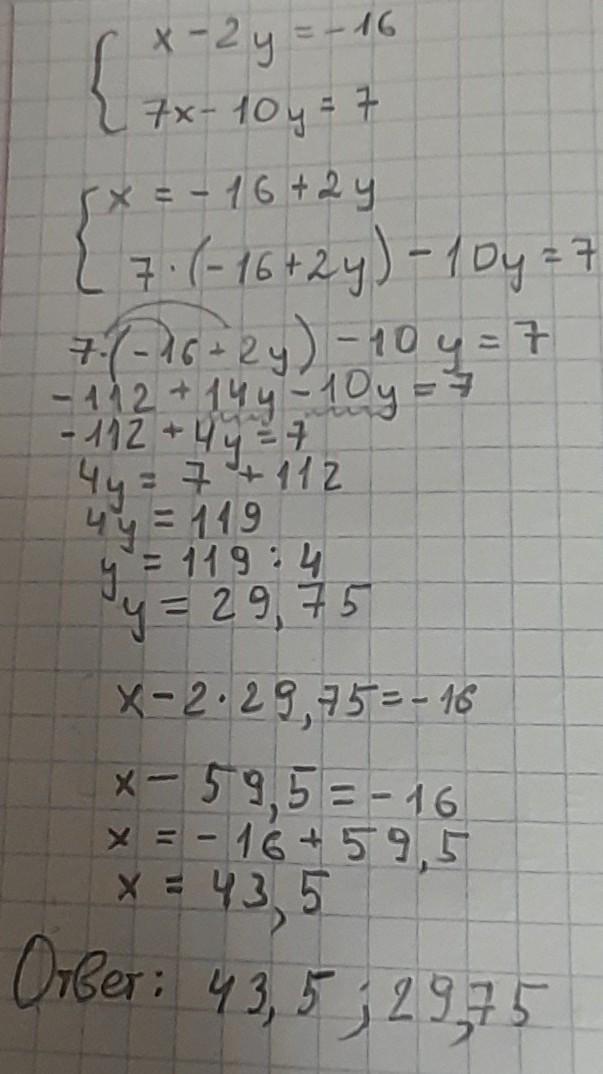 x - 2y = -16
7x - 10y = 7
x = -16 + 2y
7·(-16+2y) - 10y = 7
7·(-16+2y) - 10y = 7
-112 + 14y - 10y = 7
-112 + 4y = 7
4y = 7 + 112
4y = 119
y = 119 : 4
y = 29,75
x - 2·29,75 = -16
x - 59,5 = -16
x = -16 + 59,5
x = 43,5
Ответ: 43,5 ; 29,75